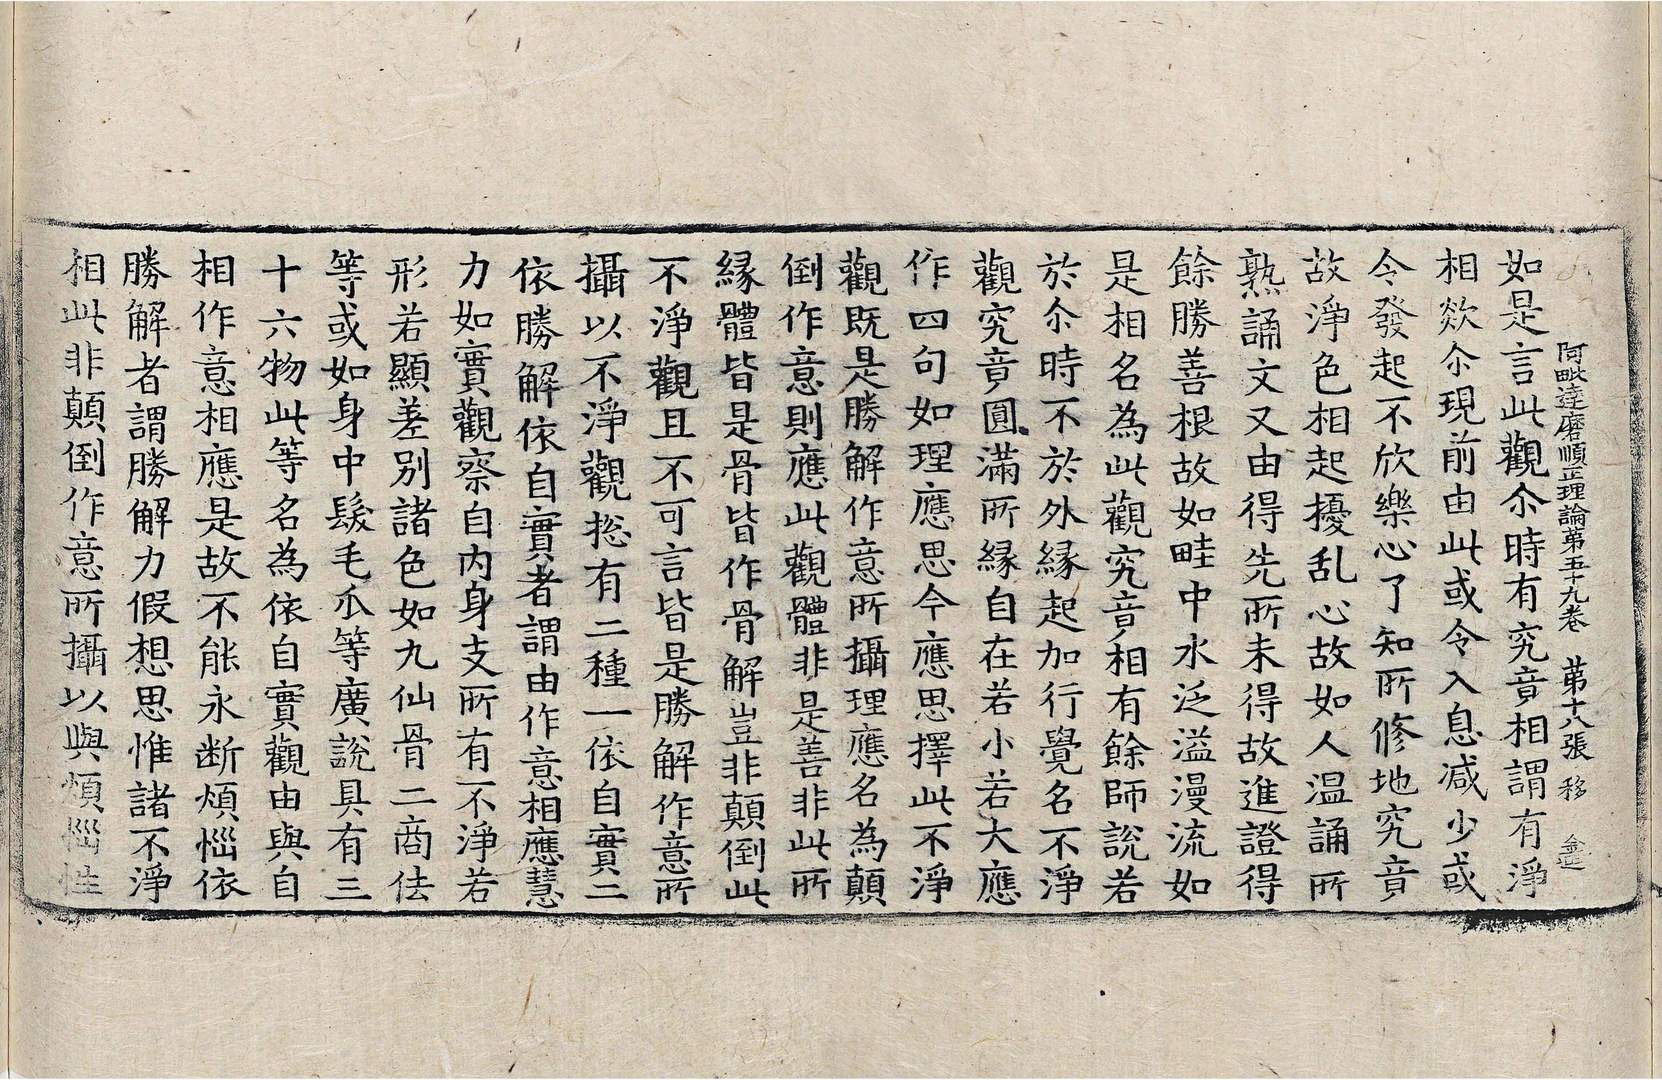 阿毗達磨順正理論第五十九卷 第十八張 移
如是言此觀尒時有究竟相謂有淨
相欻尒現前由此或令入息減少或
令發起不欣樂心了知所修地究竟
故淨色相起擾乱心故如人温誦所
熟誦文又由得先所未得故進證得
餘勝善根故如畦中水泛溢漫流如
是相名為此觀究竟相有餘師說若
於尒時不於外緣起加行覺名不淨
觀究竟圓滿所緣自在若小若大應
作四句如理應思今應思擇此不淨
觀既是勝解作意所攝理應名為顛
倒作意則應此觀體非是善非此所
緣體皆是骨皆作骨解豈非顛倒此
不淨觀且不可言皆是勝解作意所
攝以不淨觀捴有二種一依自實二
依勝解依自實者謂由作意相應慧
力如實觀察自內身支所有不淨若
形若顯差别諸色如九仙骨二商佉
等或如身中髮毛爪等廣說具有三
十六物此等名為依自實觀由與自
相作意相應是故不能永断煩惱依
勝解者謂勝解力假想思惟諸不淨
相此非顛倒作意所攝以與煩惱性